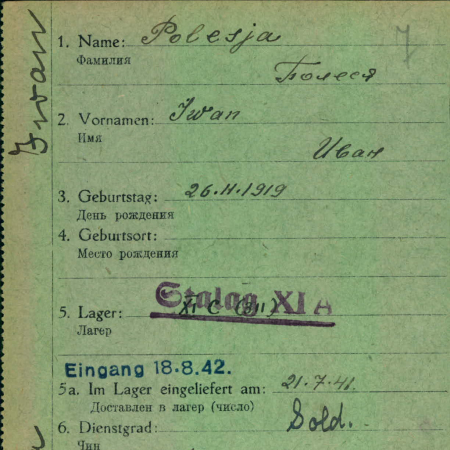 1. Name: Polesja
7
Фамилия
Полеся
2. Vornamen: Iwan
Имя
Иван
Iwan
3. Geburtstag: 26.11.1919
День рождения
4. Geburtsort:
Место рождения
Stalag XI A
5. Lager: XI C (311)
Лагер
Eingang 18.8.42.
5a. Im Lager eingeliefert am: 21.7.41.
Доставлен в лагер (число)
6. Dienstgrad: Sold.
Чин